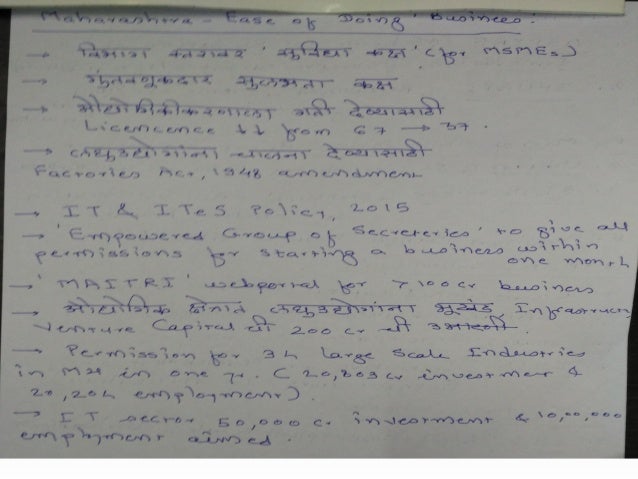 Maharashtra - Ease of Doing Business:
→ विभाग स्तरावर 'सुविधा कक्ष' (for MSMEs)
→ गुंतवणूकदार सुलभता कक्ष
→ औद्योगिकीकरणाला गती देण्यासाठी
Licencence ↓↓ from 67 → 37.
→ लघुउद्योगांना चालना देण्यासाठी
Factories Act, 1948 amendment
→ IT & ITeS Policy, 2015
→ 'Empowered Group of Secreteries' to give all
permissions for starting a business within
one month
→ 'MAITRI' webportal for > 100 cr business
→ औद्योगिक क्षेत्रात लघुउद्योगांना भूखंड, Infrastruc,
Venture Capital ची 200 cr ची
→ Permission for 34 Large Scale Industries
in MH in one yr. (20,803 cr investment &
20,204 employment).
→ IT sector 50,000 cr investment & 10,00,000
employment aimed.